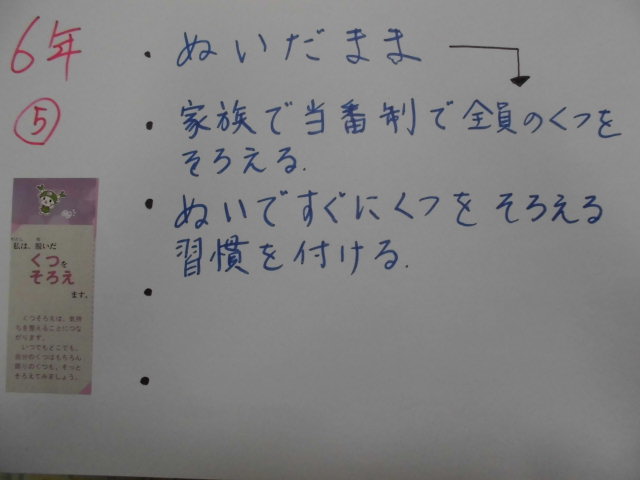 6年
⑤
・ ぬいだまま
・ 家族で当番制で全員のくつを
そろえる.
・ ぬいですぐにくつをそろえる
習慣を付ける.
・
・
私は、脱いだ
くつを
そろえ
ます。
くつそろえは、気持
ちを整えることにつな
がります。
いつでもどこでも、
自分のくつはもちろん
周りのくつも、そっと
そろえてみましょう。